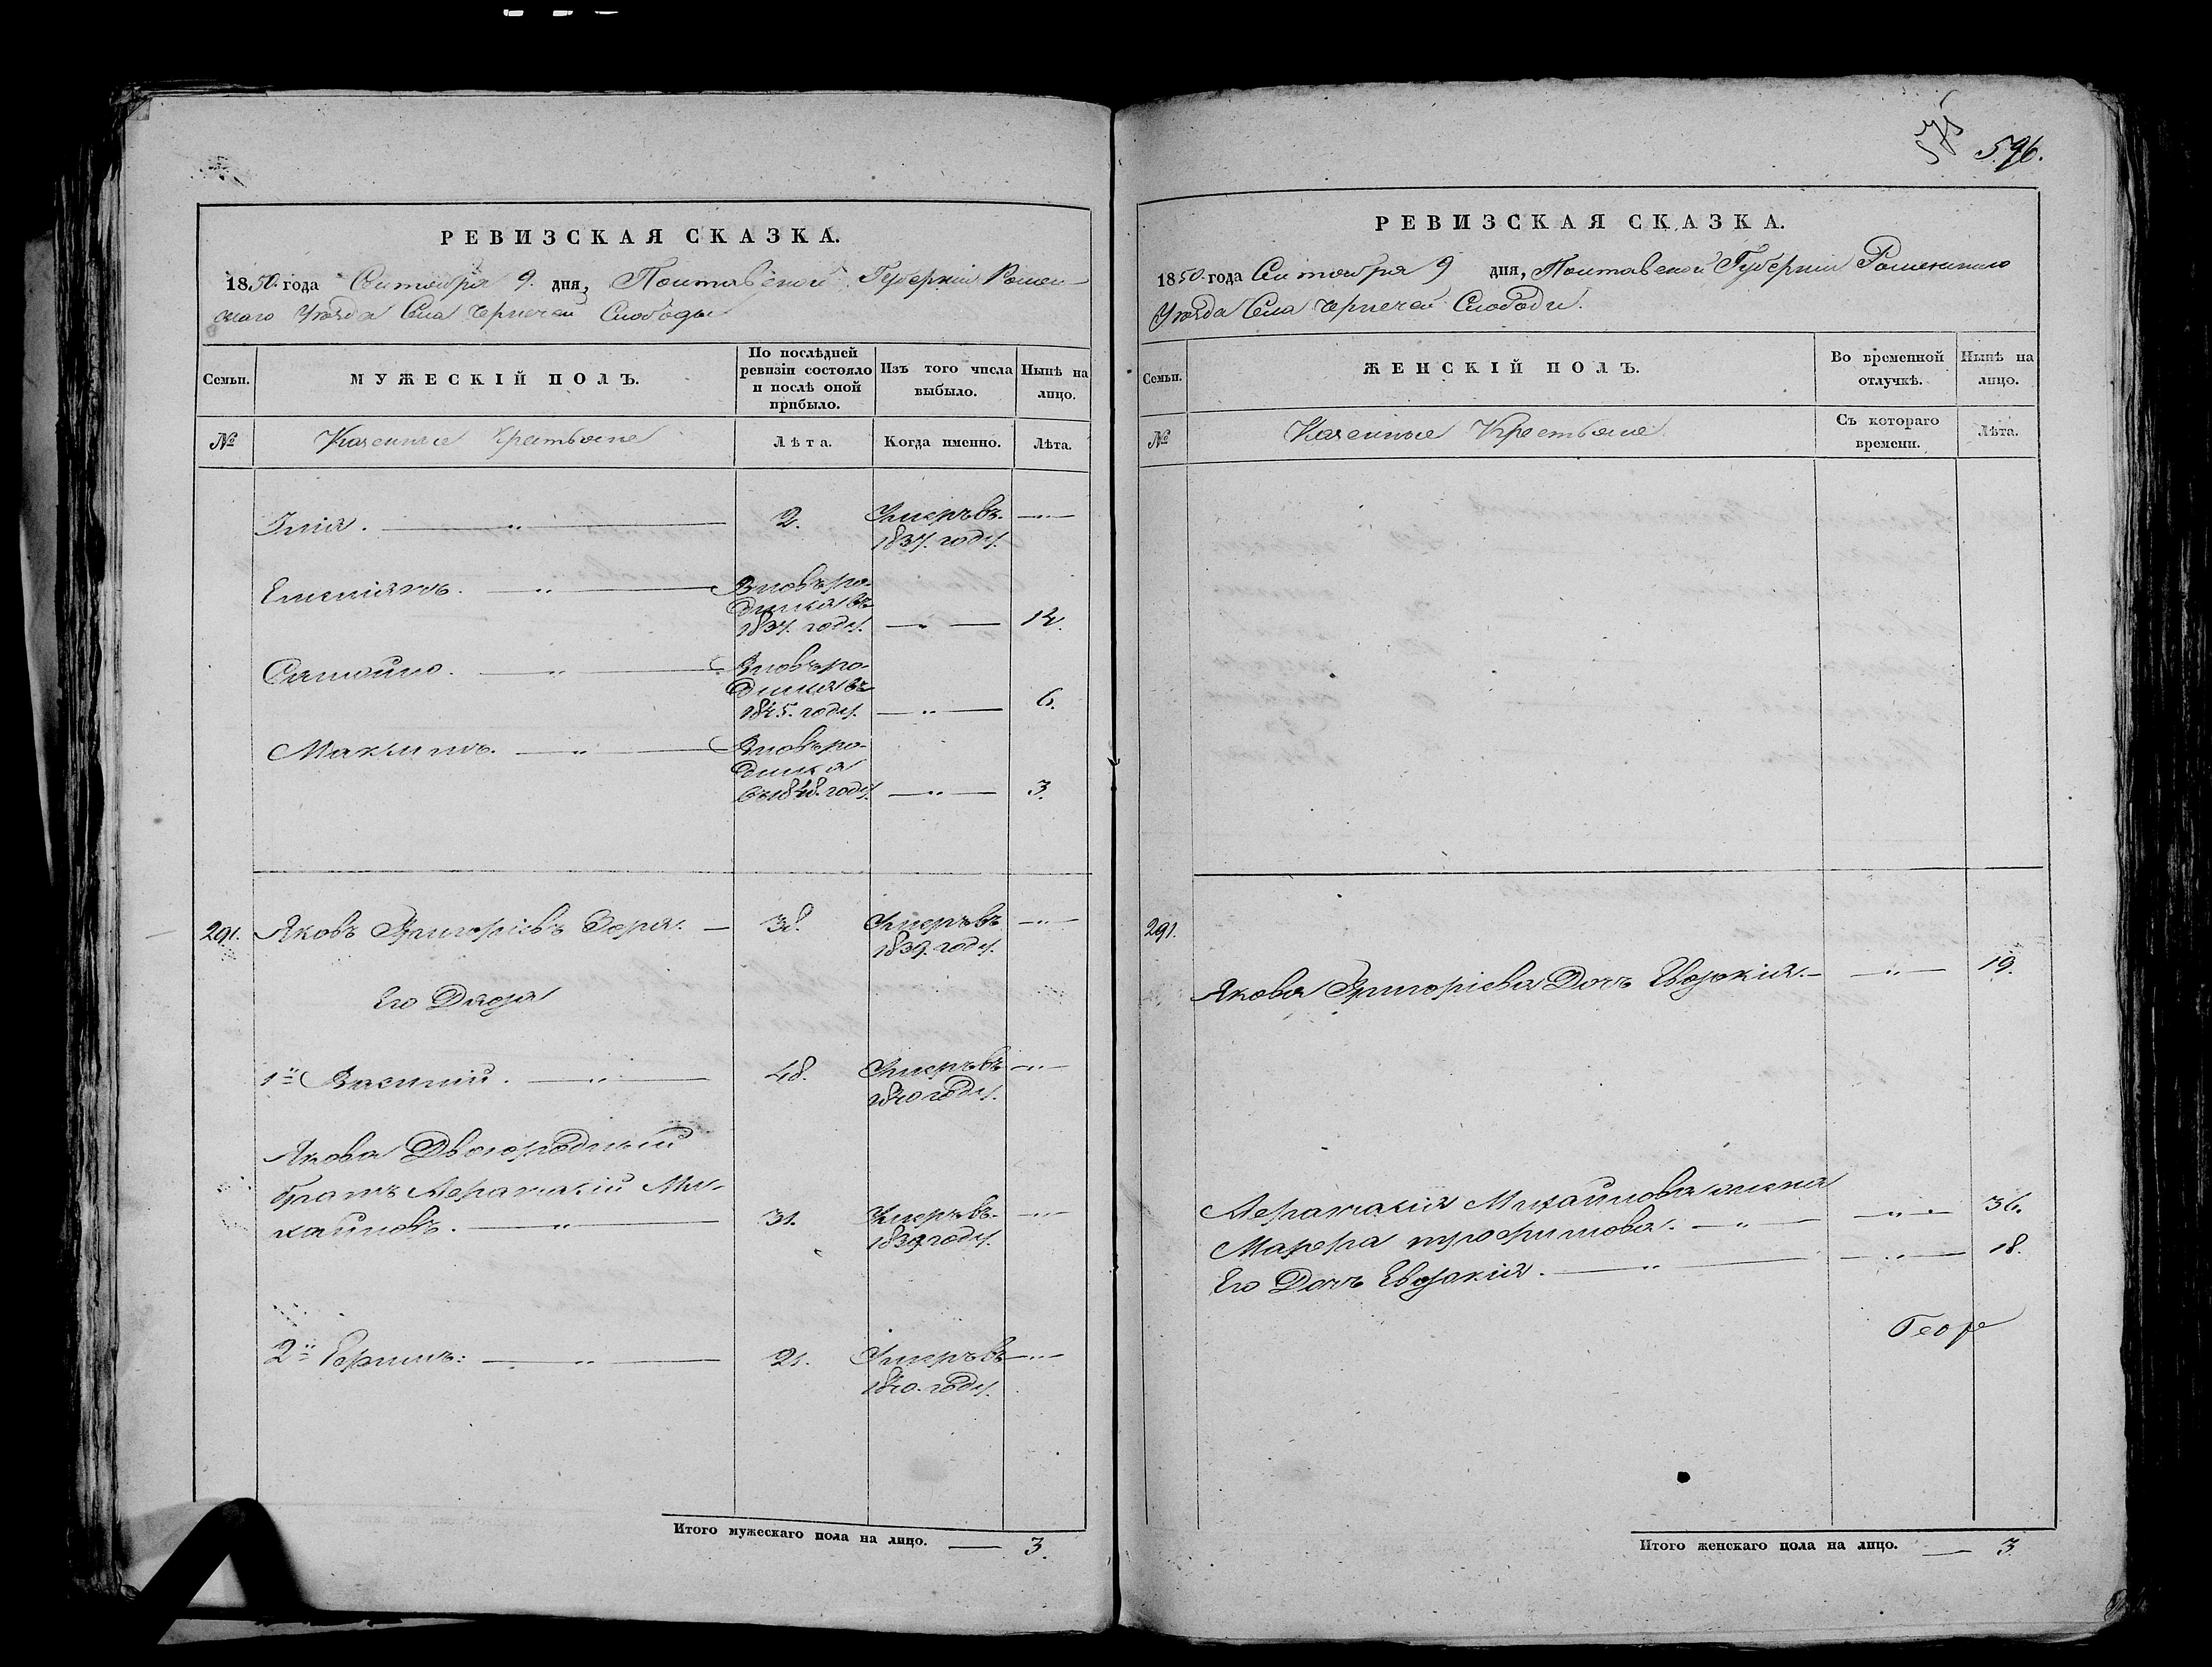 РЕВИЗСКАЯ СКАЗКА.
1850 года Октоября 9. дня, Полтавской Губерніи Ромен-
скаго Уезда Села Чернечей Слободы
Семьи.
МУЖЕСКІЙ ПОЛЪ.
По послѣдней ревизіи состояло и послѣ оной прибыло.
Изъ того числа выбыло.
Нынѣ на лицо.
№
Казенные Крестьяне
Лѣта.
Когда именно.
Лѣта.
Илія. 2. Умеръ въ
1837. году.
Емеліянъ. Вновь ро-
дился въ
1837. году. 14.
Самойло. Вновь ро-
дился въ
1845. году. 6.
Максимъ. Вновь ро-
дился
въ 1848. году. 3.
291. Яковъ Григоріевъ 38. Умеръ въ
1839. году.
Его Дядя
1й Василій. 48. Умеръ въ
1840 году.
Якова Двоюродный
братъ Михайловъ. 31. Умеръ въ
1839 году.
2й Ефимъ: 21. Умеръ въ
1840. году.
Итого мужескаго пола на лицо. 3.
596.
РЕВИЗСКАЯ СКАЗКА.
1850. года Октоября 9 дня, Полтавской Губерніи Роменского
Уезда Села Чернечей Слободи.
Семьи.
ЖЕНСКІЙ ПОЛЪ.
Во временной отлучкѣ.
Нынѣ на лицо.
№
Казенные Крестьяне.
Съ котораго времени.
Лѣта.
291.
Якова Григоріева Дочь Евдокія. 19.
Михайлова жена
Марфа 36.
Его Дочь Евдокія. 18.
Итого женскаго пола на лицо. 3.